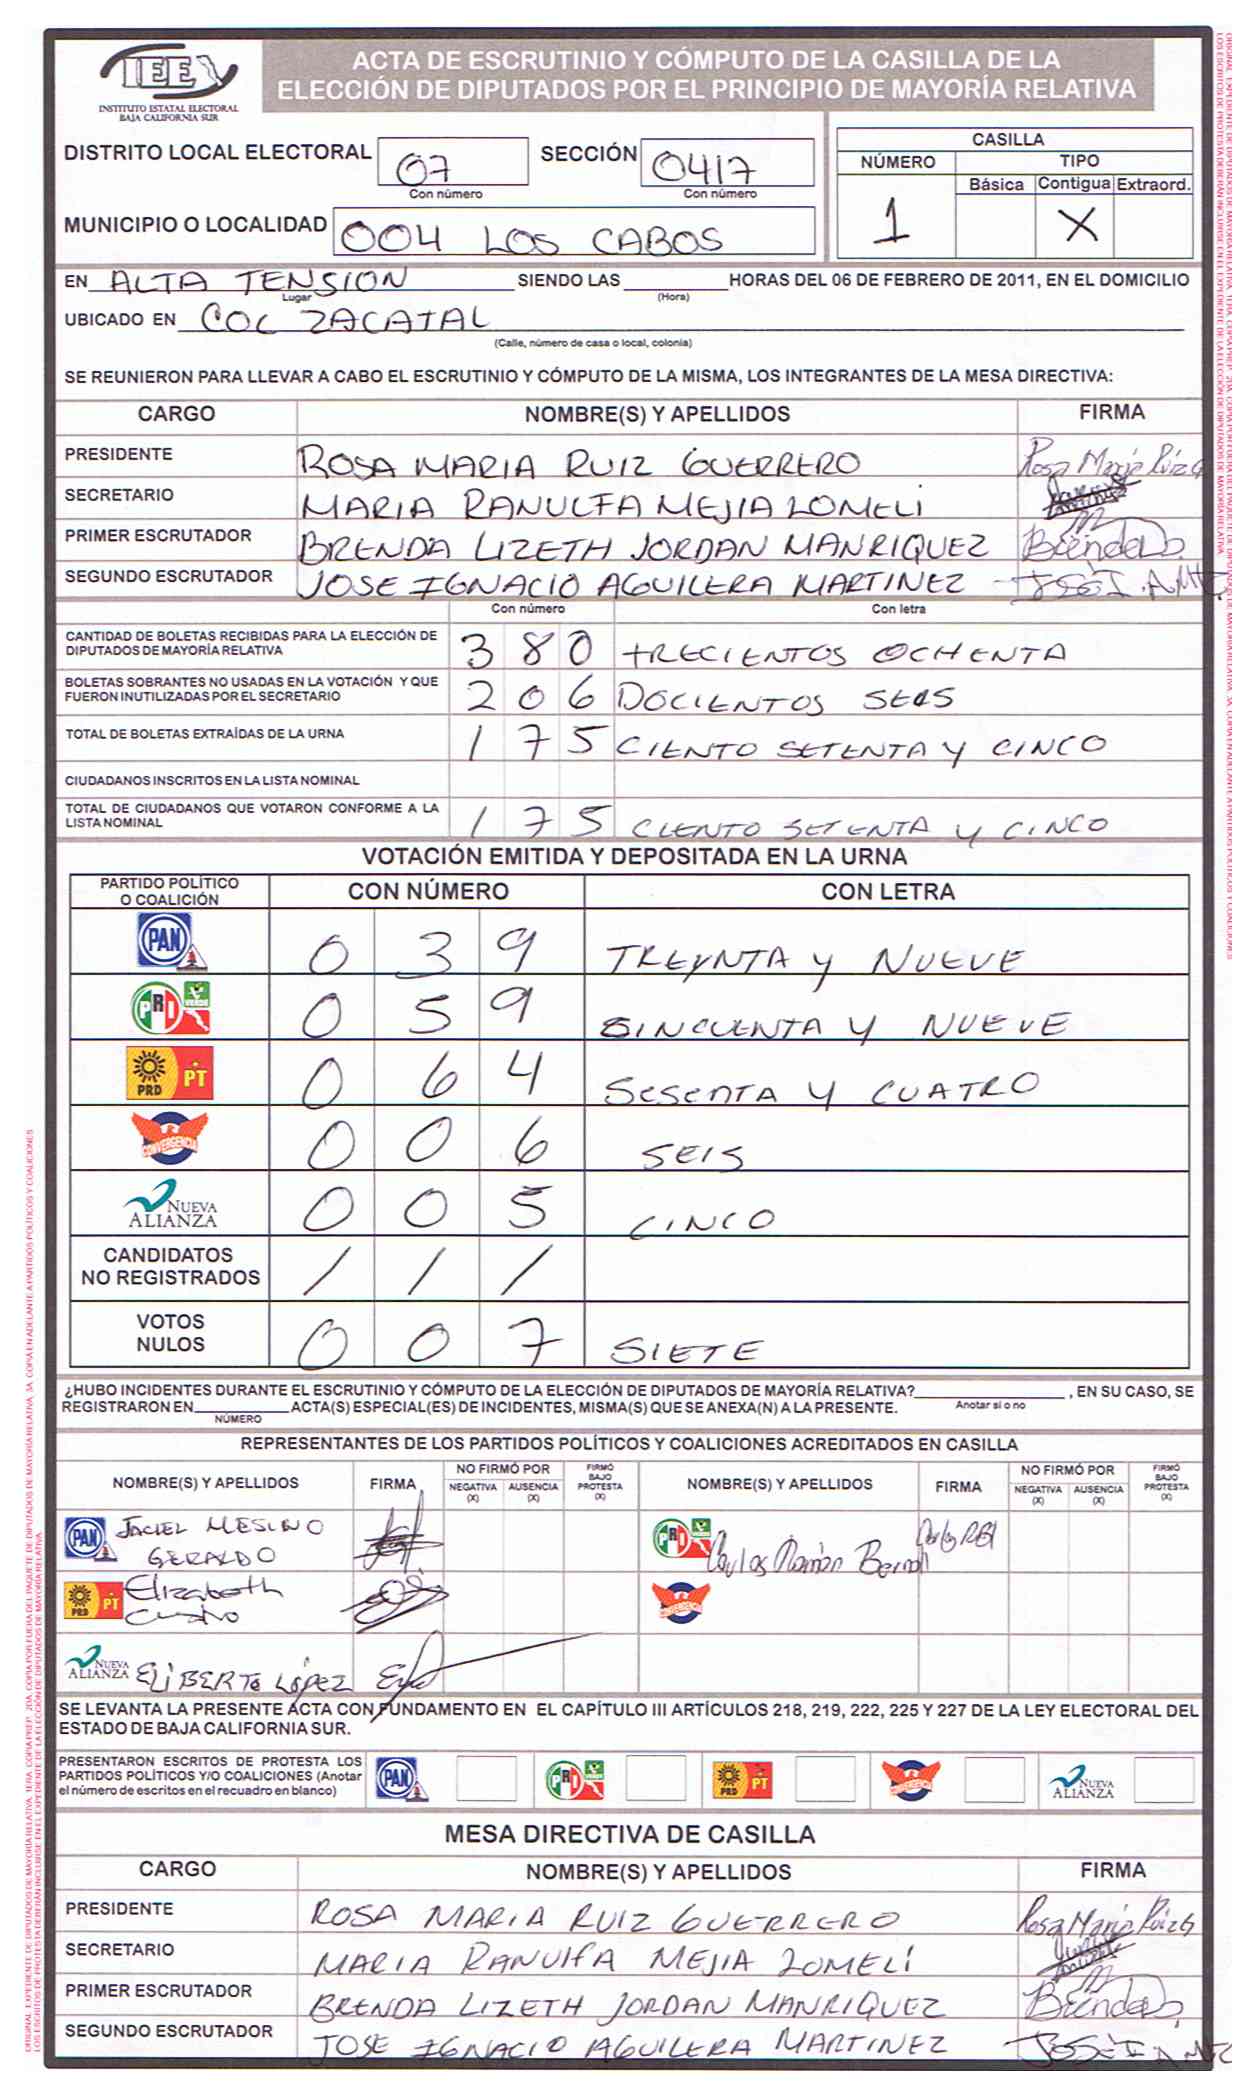 IEE
INSTITUTO ESTATAL ELECTORAL
BAJA CALIFORNIA SUR
ACTA DE ESCRUTINIO Y CÓMPUTO DE LA CASILLA DE LA
ELECCIÓN DE DIPUTADOS POR EL PRINCIPIO DE MAYORÍA RELATIVA
DISTRITO LOCAL ELECTORAL 07 SECCIÓN 0417
Con número Con número
CASILLA
NÚMERO TIPO
Básica Contigua Extraord.
1 X
MUNICIPIO O LOCALIDAD 004 LOS CABOS
EN ALTA TENSION SIENDO LAS HORAS DEL 06 DE FEBRERO DE 2011, EN EL DOMICILIO
Lugar (Hora)
UBICADO EN COL ZACATAL
(Calle, número de casa o local, colonia)
SE REUNIERON PARA LLEVAR A CABO EL ESCRUTINIO Y CÓMPUTO DE LA MISMA, LOS INTEGRANTES DE LA MESA DIRECTIVA:
CARGO NOMBRE(S) Y APELLIDOS FIRMA
PRESIDENTE ROSA MARIA RUIZ GUERRERO Rosa Maria Ruiz G
SECRETARIO MARIA RANULFA MEJIA LOMELI
PRIMER ESCRUTADOR BRENDA LIZETH JORDAN MANRIQUEZ Brenda
SEGUNDO ESCRUTADOR JOSE IGNACIO AGUILERA MARTINEZ
Con número Con letra
CANTIDAD DE BOLETAS RECIBIDAS PARA LA ELECCIÓN DE
DIPUTADOS DE MAYORÍA RELATIVA 3 8 0 TRECIENTOS OCHENTA
BOLETAS SOBRANTES NO USADAS EN LA VOTACIÓN Y QUE
FUERON INUTILIZADAS POR EL SECRETARIO 2 0 6 DOCIENTOS SEIS
TOTAL DE BOLETAS EXTRAÍDAS DE LA URNA 1 7 5 CIENTO SETENTA Y CINCO
CIUDADANOS INSCRITOS EN LA LISTA NOMINAL
TOTAL DE CIUDADANOS QUE VOTARON CONFORME A LA
LISTA NOMINAL 1 7 5 CIENTO SETENTA Y CINCO
VOTACIÓN EMITIDA Y DEPOSITADA EN LA URNA
PARTIDO POLÍTICO
O COALICIÓN CON NÚMERO CON LETRA
PAN 0 3 9 TREYNTA Y NUEVE
PRI VERDE 0 5 9 SINCUENTA Y NUEVE
PRD PT 0 6 4 SESENTA Y CUATRO
CONVERGENCIA 0 0 6 SEIS
NUEVA
ALIANZA 0 0 5 CINCO
CANDIDATOS
NO REGISTRADOS / / /
VOTOS
NULOS 0 0 7 SIETE
¿HUBO INCIDENTES DURANTE EL ESCRUTINIO Y CÓMPUTO DE LA ELECCIÓN DE DIPUTADOS DE MAYORÍA RELATIVA? , EN SU CASO, SE
REGISTRARON EN ACTA(S) ESPECIAL(ES) DE INCIDENTES, MISMA(S) QUE SE ANEXA(N) A LA PRESENTE. Anotar si o no
NÚMERO
REPRESENTANTES DE LOS PARTIDOS POLÍTICOS Y COALICIONES ACREDITADOS EN CASILLA
NOMBRE(S) Y APELLIDOS FIRMA NO FIRMÓ POR NEGATIVA (X) AUSENCIA (X) FIRMÓ BAJO PROTESTA (X) NOMBRE(S) Y APELLIDOS FIRMA NO FIRMÓ POR NEGATIVA (X) AUSENCIA (X) FIRMÓ BAJO PROTESTA (X)
PAN JACIEL MESINO
GERALDO
PRI VERDE Carlos Ramón Bernal
PRD PT Elizabeth
CONVERGENCIA
NUEVA
ALIANZA ELIBERTO LÓPEZ
SE LEVANTA LA PRESENTE ACTA CON FUNDAMENTO EN EL CAPÍTULO III ARTÍCULOS 218, 219, 222, 225 Y 227 DE LA LEY ELECTORAL DEL
ESTADO DE BAJA CALIFORNIA SUR.
PRESENTARON ESCRITOS DE PROTESTA LOS
PARTIDOS POLÍTICOS Y/O COALICIONES (Anotar
el número de escritos en el recuadro en blanco) PAN PRI VERDE PRD PT CONVERGENCIA NUEVA ALIANZA
MESA DIRECTIVA DE CASILLA
CARGO NOMBRE(S) Y APELLIDOS FIRMA
PRESIDENTE ROSA MARIA RUIZ GUERRERO Rosa Maria Ruiz G
SECRETARIO MARIA RANULFA MEJIA LOMELÍ
PRIMER ESCRUTADOR BRENDA LIZETH JORDAN MANRIQUEZ Brenda
SEGUNDO ESCRUTADOR JOSE IGNACIO AGUILERA MARTINEZ